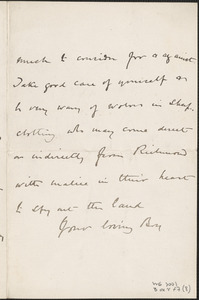 much to consider for & against
Take good care of yourself &
be very wary of wolves in sheeps
clothing who may come direct
or indirectly from Richmond
with malice in their heart
to spy out the land
Your loving Boy